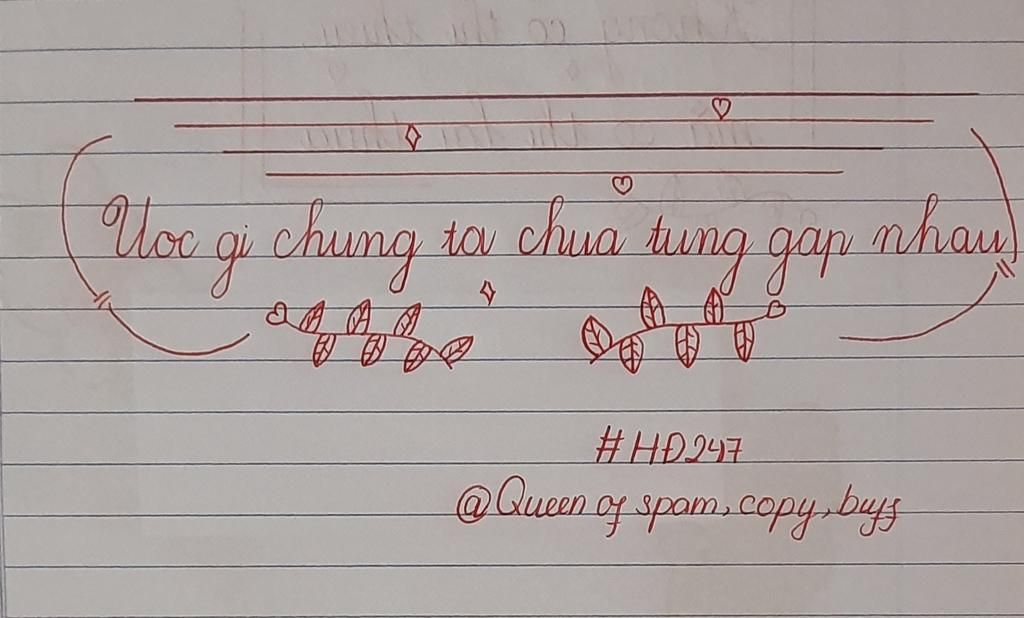 Uoc gi chung ta chua tung gap nhau
#HĐ247
@Queen of spam, copy, buff